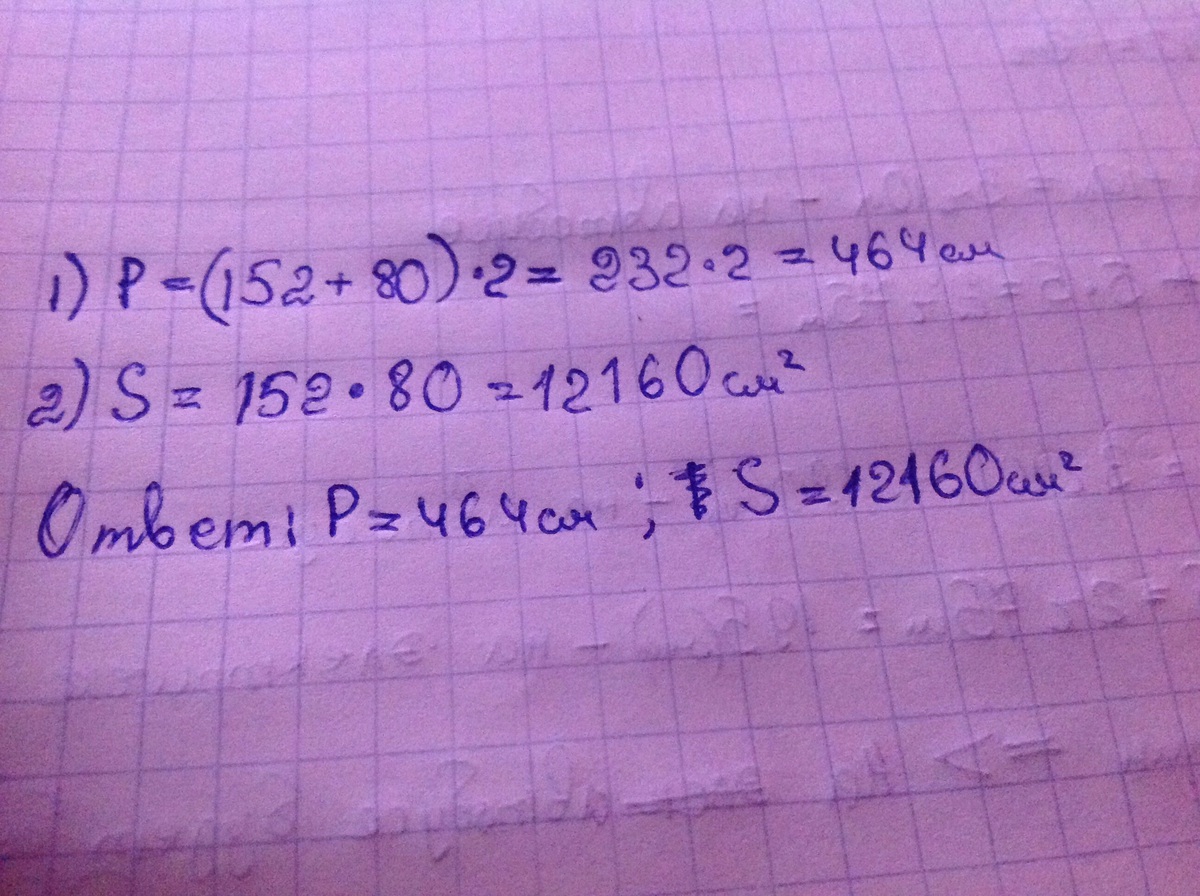 1) P = (152 + 80) · 2 = 232 · 2 = 464 см
2) S = 152 · 80 = 12160 см²
Ответ: P = 464 см ; S = 12160 см²